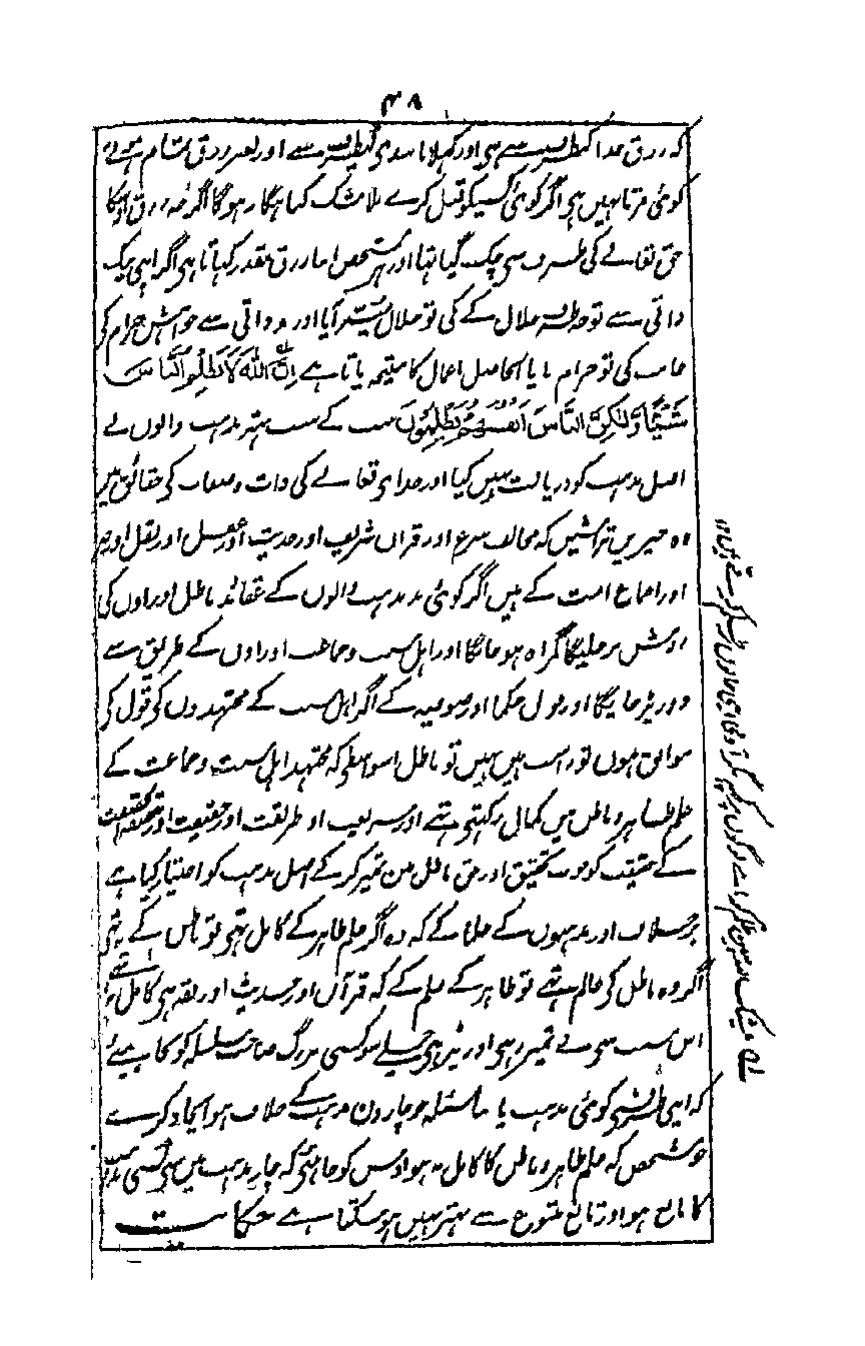 ۴۸
کہ رزق خدا کیطرف سے ہی اور کہلانا بندی کیطرف سے اور بغیر رزق تمام ہوئے
کوئی مرتا نہیں ہی اگر کوئی کسیکو قتل کرے بلا شک گناہگار ہوگا اگرچہ رزق اوسکا
حق تعالے کی طرف سی چک گیا تہا اور ہر شخص اپنا رزق مقدر کہاتا ہی اگر اپنی نیک
ذاتی سے توجہ طرف حلال کے کی تو حلال میسر آیا اور بد ذاتی سے خواہش حرام کی
جانب کی تو حرام پایا الحاصل اعمال کا نتیجہ پاتا ہے اِنَّ اللّٰهَ لَا يَظْلِمُ النَّاسَ
شَيْئًا وَّلٰكِنَّ النَّاسَ اَنْفُسَهُمْ يَظْلِمُونَ سب کے سب بہتر مذہب والوں نے
اصل مذہب کو دریافت نہیں کیا اور خدای تعالے کی ذات و صفات کی حقائق میں
وہ چیزیں تراشیں کہ مخالف شرع اور قرآن شریف اور حدیث اور عقل اور نقل اور
اور اجماع امت کے ہیں اگر کوئی بد مذہب والوں کے عقائد باطل اور اون کی
روش پر چلیگا گمراہ ہو جائیگا اور اہل سنت و جماعت اور اون کے طریق سے
دور پڑ جائیگا اور قول حکما اور صوفیہ کے اگر اہل سنت کے مجتہدوں کو قول کی
موافق ہوں تو راست ہیں نہیں تو باطل اسواسطے کہ مجتہد اہل سنت و جماعت کے
علم ظاہر و باطن میں کمال رکہتی تہے اور شریعت او طریقت اور حقیقت اور
کے حقیقت کو خوب تحقیق اور حق باطل میں تمیز کر کے اصل مذہب کو اختیار کیا ہے
برخلاف اور مذہبوں کے علما کے کہ وہ اگر علم ظاہر کے کامل تہی تو باطن کے نہتی
اگر وہ باطن کی عالم تہے تو ظاہر کے علم کے کہ قرآن اور حدیث اور فقہ ہی کامل نہ تہے
اس سبب سی بے تمیز رہی اور ٹیڑہی چلے سو کسی بزرگ صاحب سلسلہ کو نچاہیئے
کہ اپنی طرف سی کوئی مذہب یا مسئلہ جو چارون مذہب کے خلاف ہو ایجاد کرے
جو شخص کہ علم ظاہر و باطن کا کامل نہ ہو اوس کو چاہئی کہ چار مذہب میں سی کسی مذہب
کا تابع ہو اور تابع متبوع سے بہتر نہیں ہو سکتا ہے حکایت
لہ بیشک اللہ نہیں ظلم کرتا ہے لوگوں پر کچھ مگر آدمی اپنی جانوں پر ظلم کرتے ہیں ۱۲